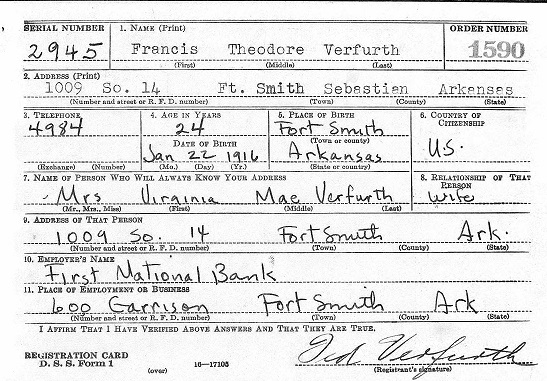 SERIAL NUMBER 1. NAME (Print) ORDER NUMBER
2945 Francis Theodore Verfurth 1590
(First) (Middle) (Last)
2. ADDRESS (Print)
1009 So. 14 Ft. Smith Sebastian Arkansas
(Number and street or R. F. D. number) (Town) (County) (State)
3. TELEPHONE 4. AGE IN YEARS 5. PLACE OF BIRTH 6. COUNTRY OF CITIZENSHIP
4984 24 Fort Smith
DATE OF BIRTH (Town or county)
Jan 22 1916 Arkansas U.S.
(Exchange) (Number) (Mo.) (Day) (Yr.) (State or country)
7. NAME OF PERSON WHO WILL ALWAYS KNOW YOUR ADDRESS 8. RELATIONSHIP OF THAT PERSON
Mrs Virginia Mae Verfurth wife
(Mr., Mrs., Miss) (First) (Middle) (Last)
9. ADDRESS OF THAT PERSON
1009 So. 14 Fort Smith Ark.
(Number and street or R. F. D. number) (Town) (County) (State)
10. EMPLOYER'S NAME
First National Bank
11. PLACE OF EMPLOYMENT OR BUSINESS
600 Garrison Fort Smith Ark
(Number and street or R. F. D. number) (Town) (County) (State)
I AFFIRM THAT I HAVE VERIFIED ABOVE ANSWERS AND THAT THEY ARE TRUE.
Ted Verfurth
REGISTRATION CARD
D. S. S. Form 1 (over) 16—17105 (Registrant's signature)